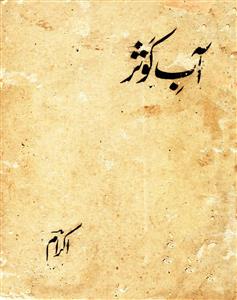 آبِ کوَثر
اکرام